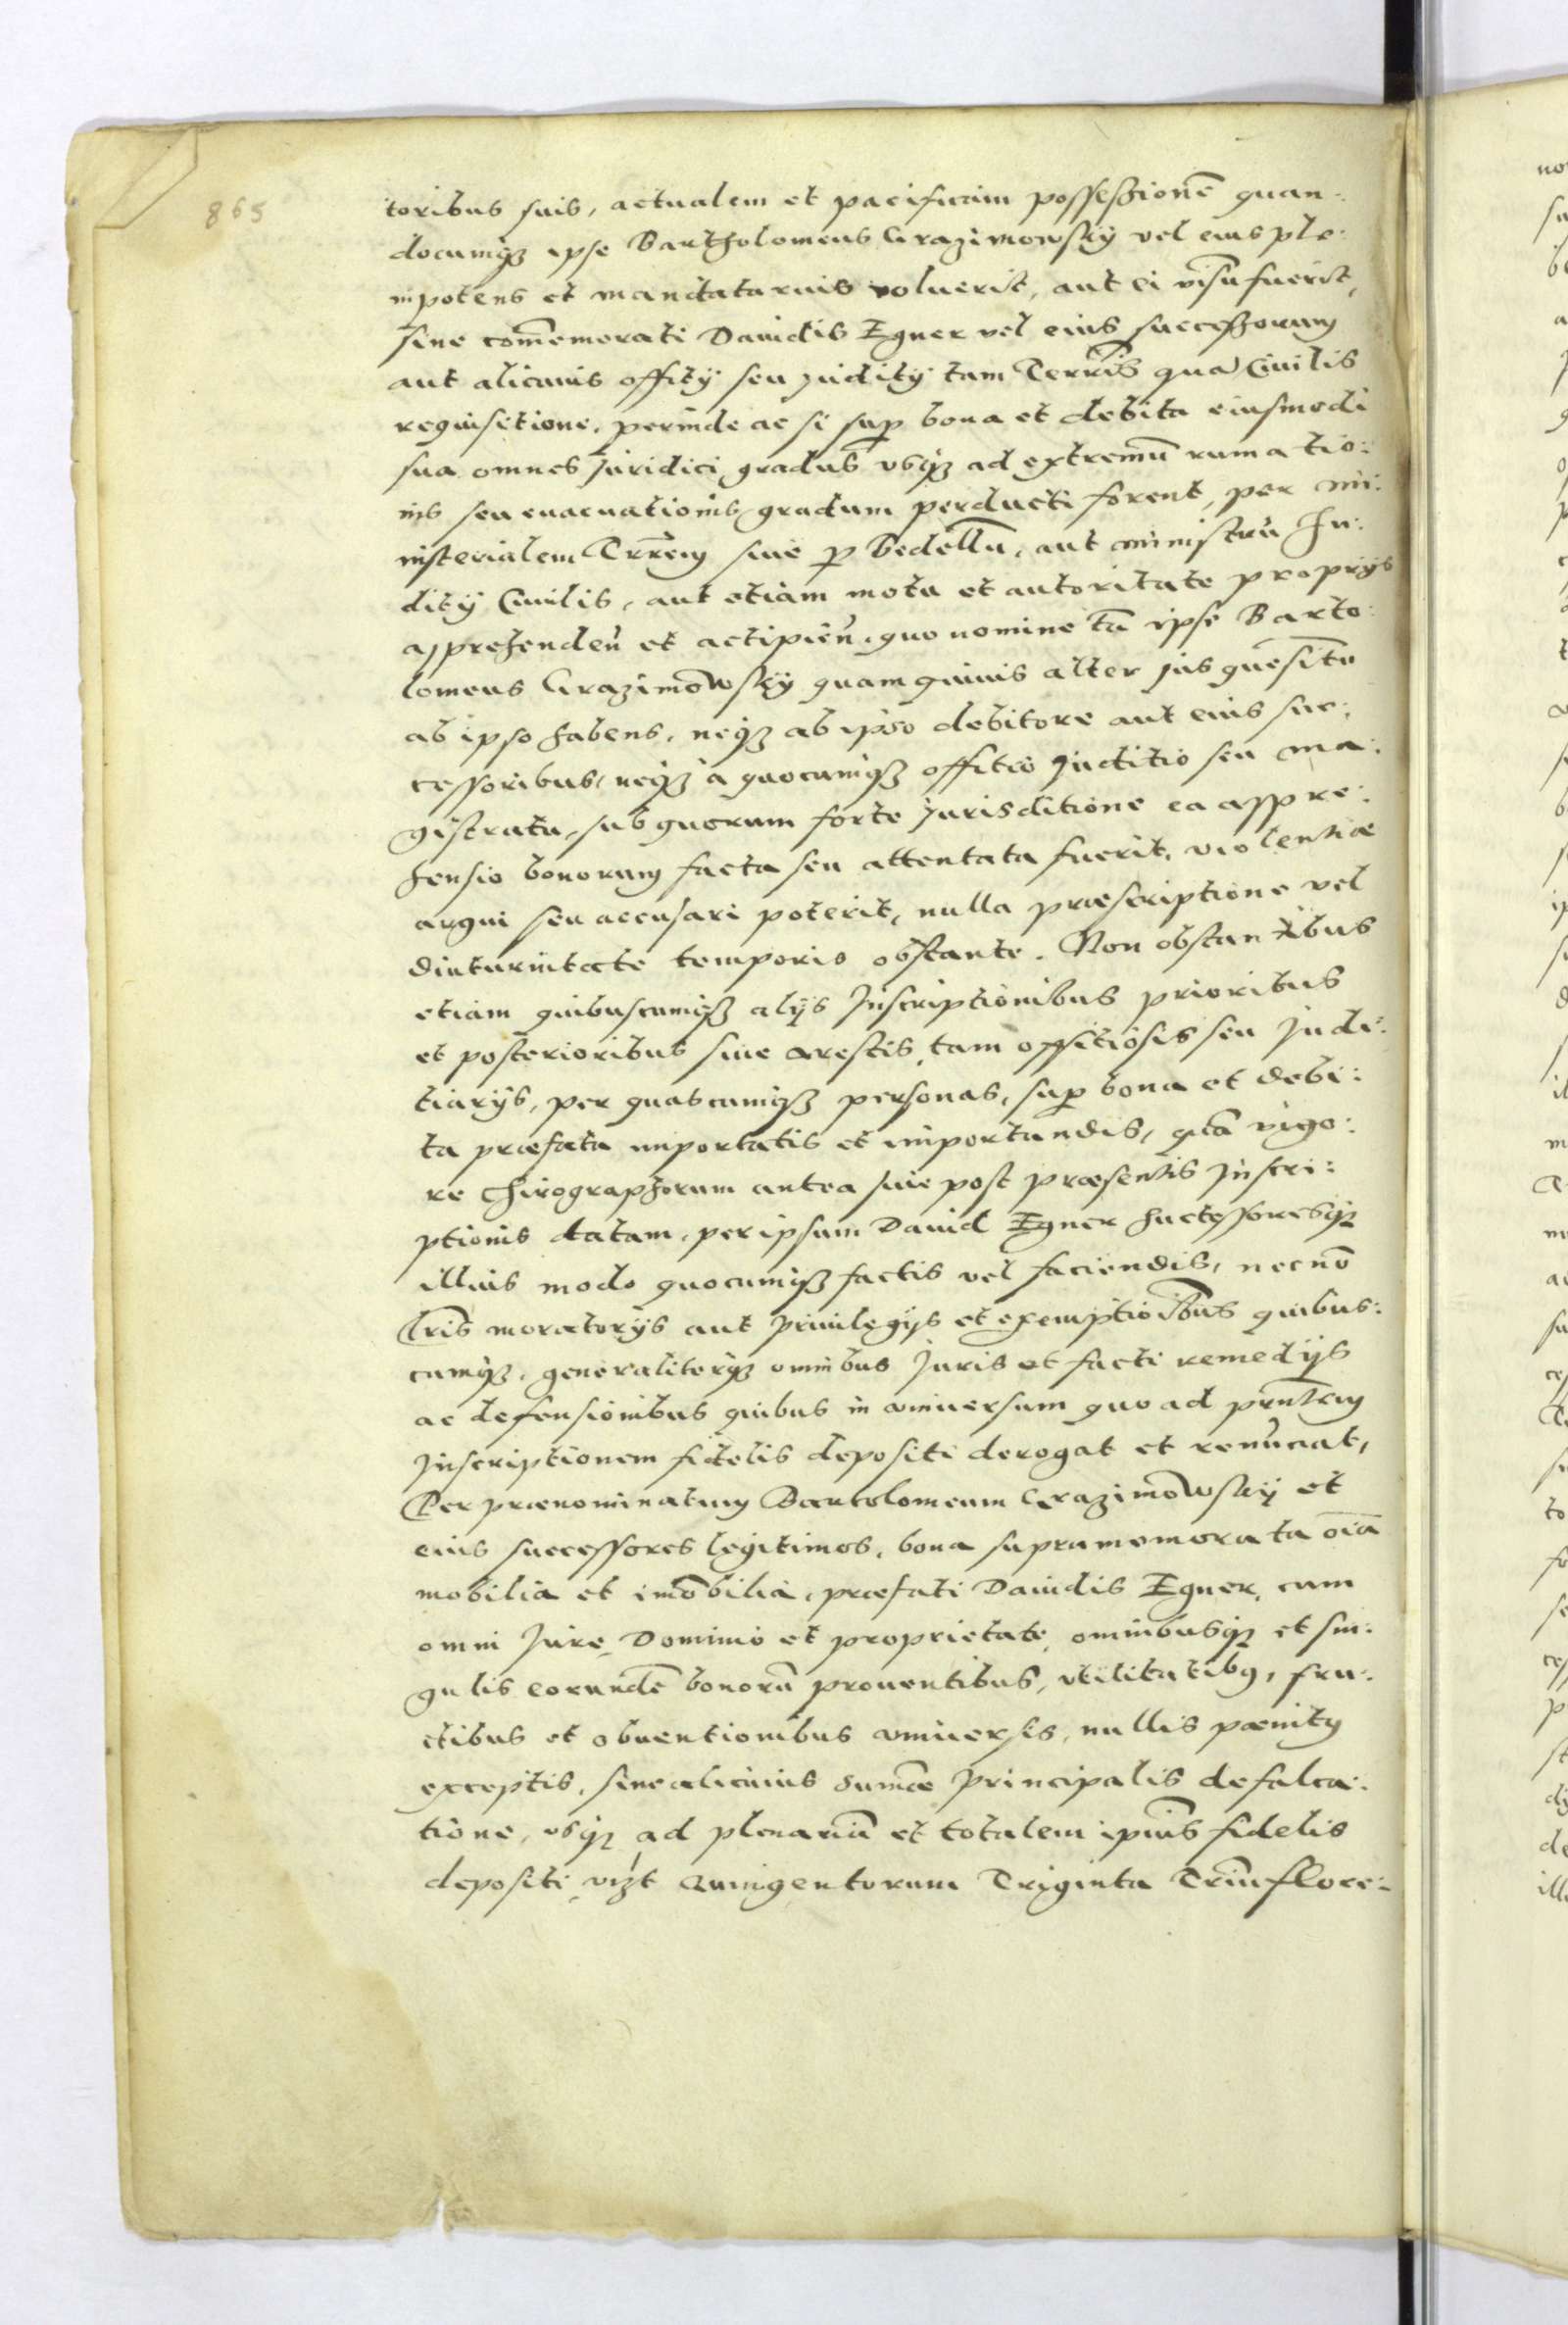 865
toribus suis, actualem et pacificam possessionē quan:
documqȝ ipse Bartholomeus Grazimowsky vel eius ple:
nipotens et mandatarius voluerit, aut ei visū fuerit,
sine com̄emorati Dauidis Egner vel eius successorum
aut alicuius offitÿ seu Juditÿ tam Terrīs quā Ciuilis
requisitione, perinde ac si sup bona et debita eiusmodi
sua omnes Juridici gradus vsqȝ ad extremū rumatio:
nis seu euacuationis gradum perducti forent, per mi:
nisterialem Trrēm siue p Bedellū, aut ministrū Ju:
ditÿ Ciuilis, aut etiam motu et autoritate proprÿs
apprehendeñ et actipieñ. quo nomine tā ipse Barto:
lomeus Grazimowskÿ quam quiuis alter jus quesitū
ab ipso habens, neqȝ ab ipso debitore aut eius suc:
cessoribus, neqȝ à quocumqȝ offitio Juditio seu ma:
gistratu, sub quorum forte Jurisditione ea appre:
hensio bonorum facta seu attentata fuerit, violentiæ
argui seu accusari poterit, nulla præscriptione vel
diuturnitate temporis obstante. Non obstantibus
etiam quibuscumqȝ alÿs Inscriptionibus prioribus
et posterioribus siue arestis, tam offitiosis seu Judi:
tiarÿs, per quascumqȝ personas, sup bona et debi:
ta præfata importatis et importandis, etiā vigo:
re Chirographorum antea siue post præsentis Inscri:
ptionis datam, per ipsum Dauid Egner successoresqȝ
illius modo quocumqȝ factis vel faciendis, necnō
Lrīs moratorÿs aut Priuilegÿs et exemptioībus quibus:
cumqȝ, generaliterqȝ omnibus Juris et facti remedÿs
ac defensionibus quibus in vniuersum quo ad prñtem
Inscriptionem fidelis depositi derogat et renūciat,
Per prænominatum Bartolomeum Grazimowskÿ et
eius successores legitimos, bona supramemorata oīa
mobilia et imōbilia, præfati Dauidis Egner, cum
omni Jure, Dominio et proprietate, omnibusqȝ et sin:
gulis eorundē bonorū prouentibus, vtilitatibꝰ, fru:
ctibus et obuentionibus vniuersis, nullis pænitꝰ
exceptis, sine alicuius sumæ Principalis defalca:
tione, vsqȝ ad plenariā et totalem ipīus fidelis
depositi vizt Quingentorum Triginta Triū flore: